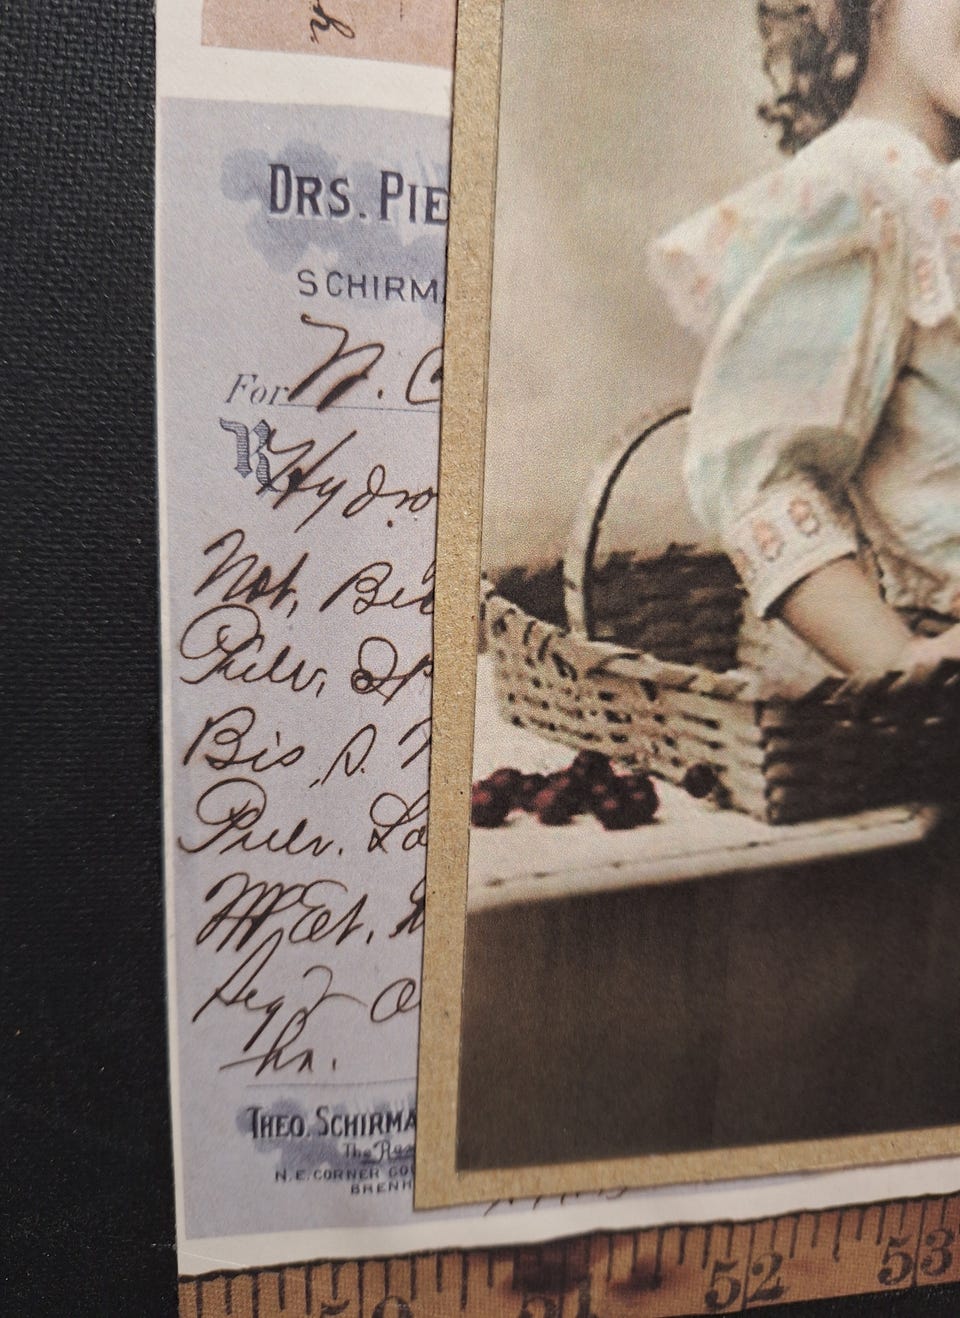 h.
DRS. PIE
SCHIRMA
For N. C
Hydro
Not, Bei
Pulv, Sp
Bis S. N
Pulv. Lo
Ft. M
Sig
hr.
THEO. SCHIRMA
The Rex
N. E. CORNER COU
BRENH
50 51 52 53